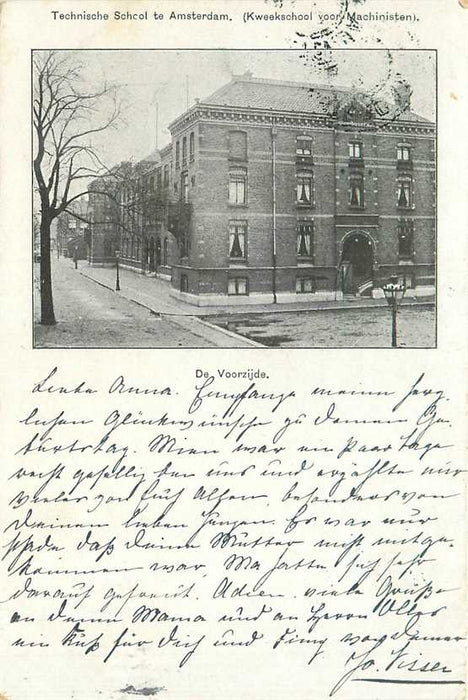 Technische School te Amsterdam. (Kweekschool voor Machinisten).
De Voorzijde.
Liebe Anna. Empfange meine herz-
lichen Glückwünsche zu deinem Ge-
burtstag. Mien war ein paar Tage
recht gesellig bei uns und erzählte mir
vieles von Euch Allen, besonders von
Deinem lieben Jungen. Es war nur
schade, daß deine Mutter nicht mitge-
kommen war. Ma hatte sich sehr
darauf gefreut. Adieu. viele Grüße
an deine Mama und an Herrn
ein Kuß für Dich und von deiner
Jo. Visser